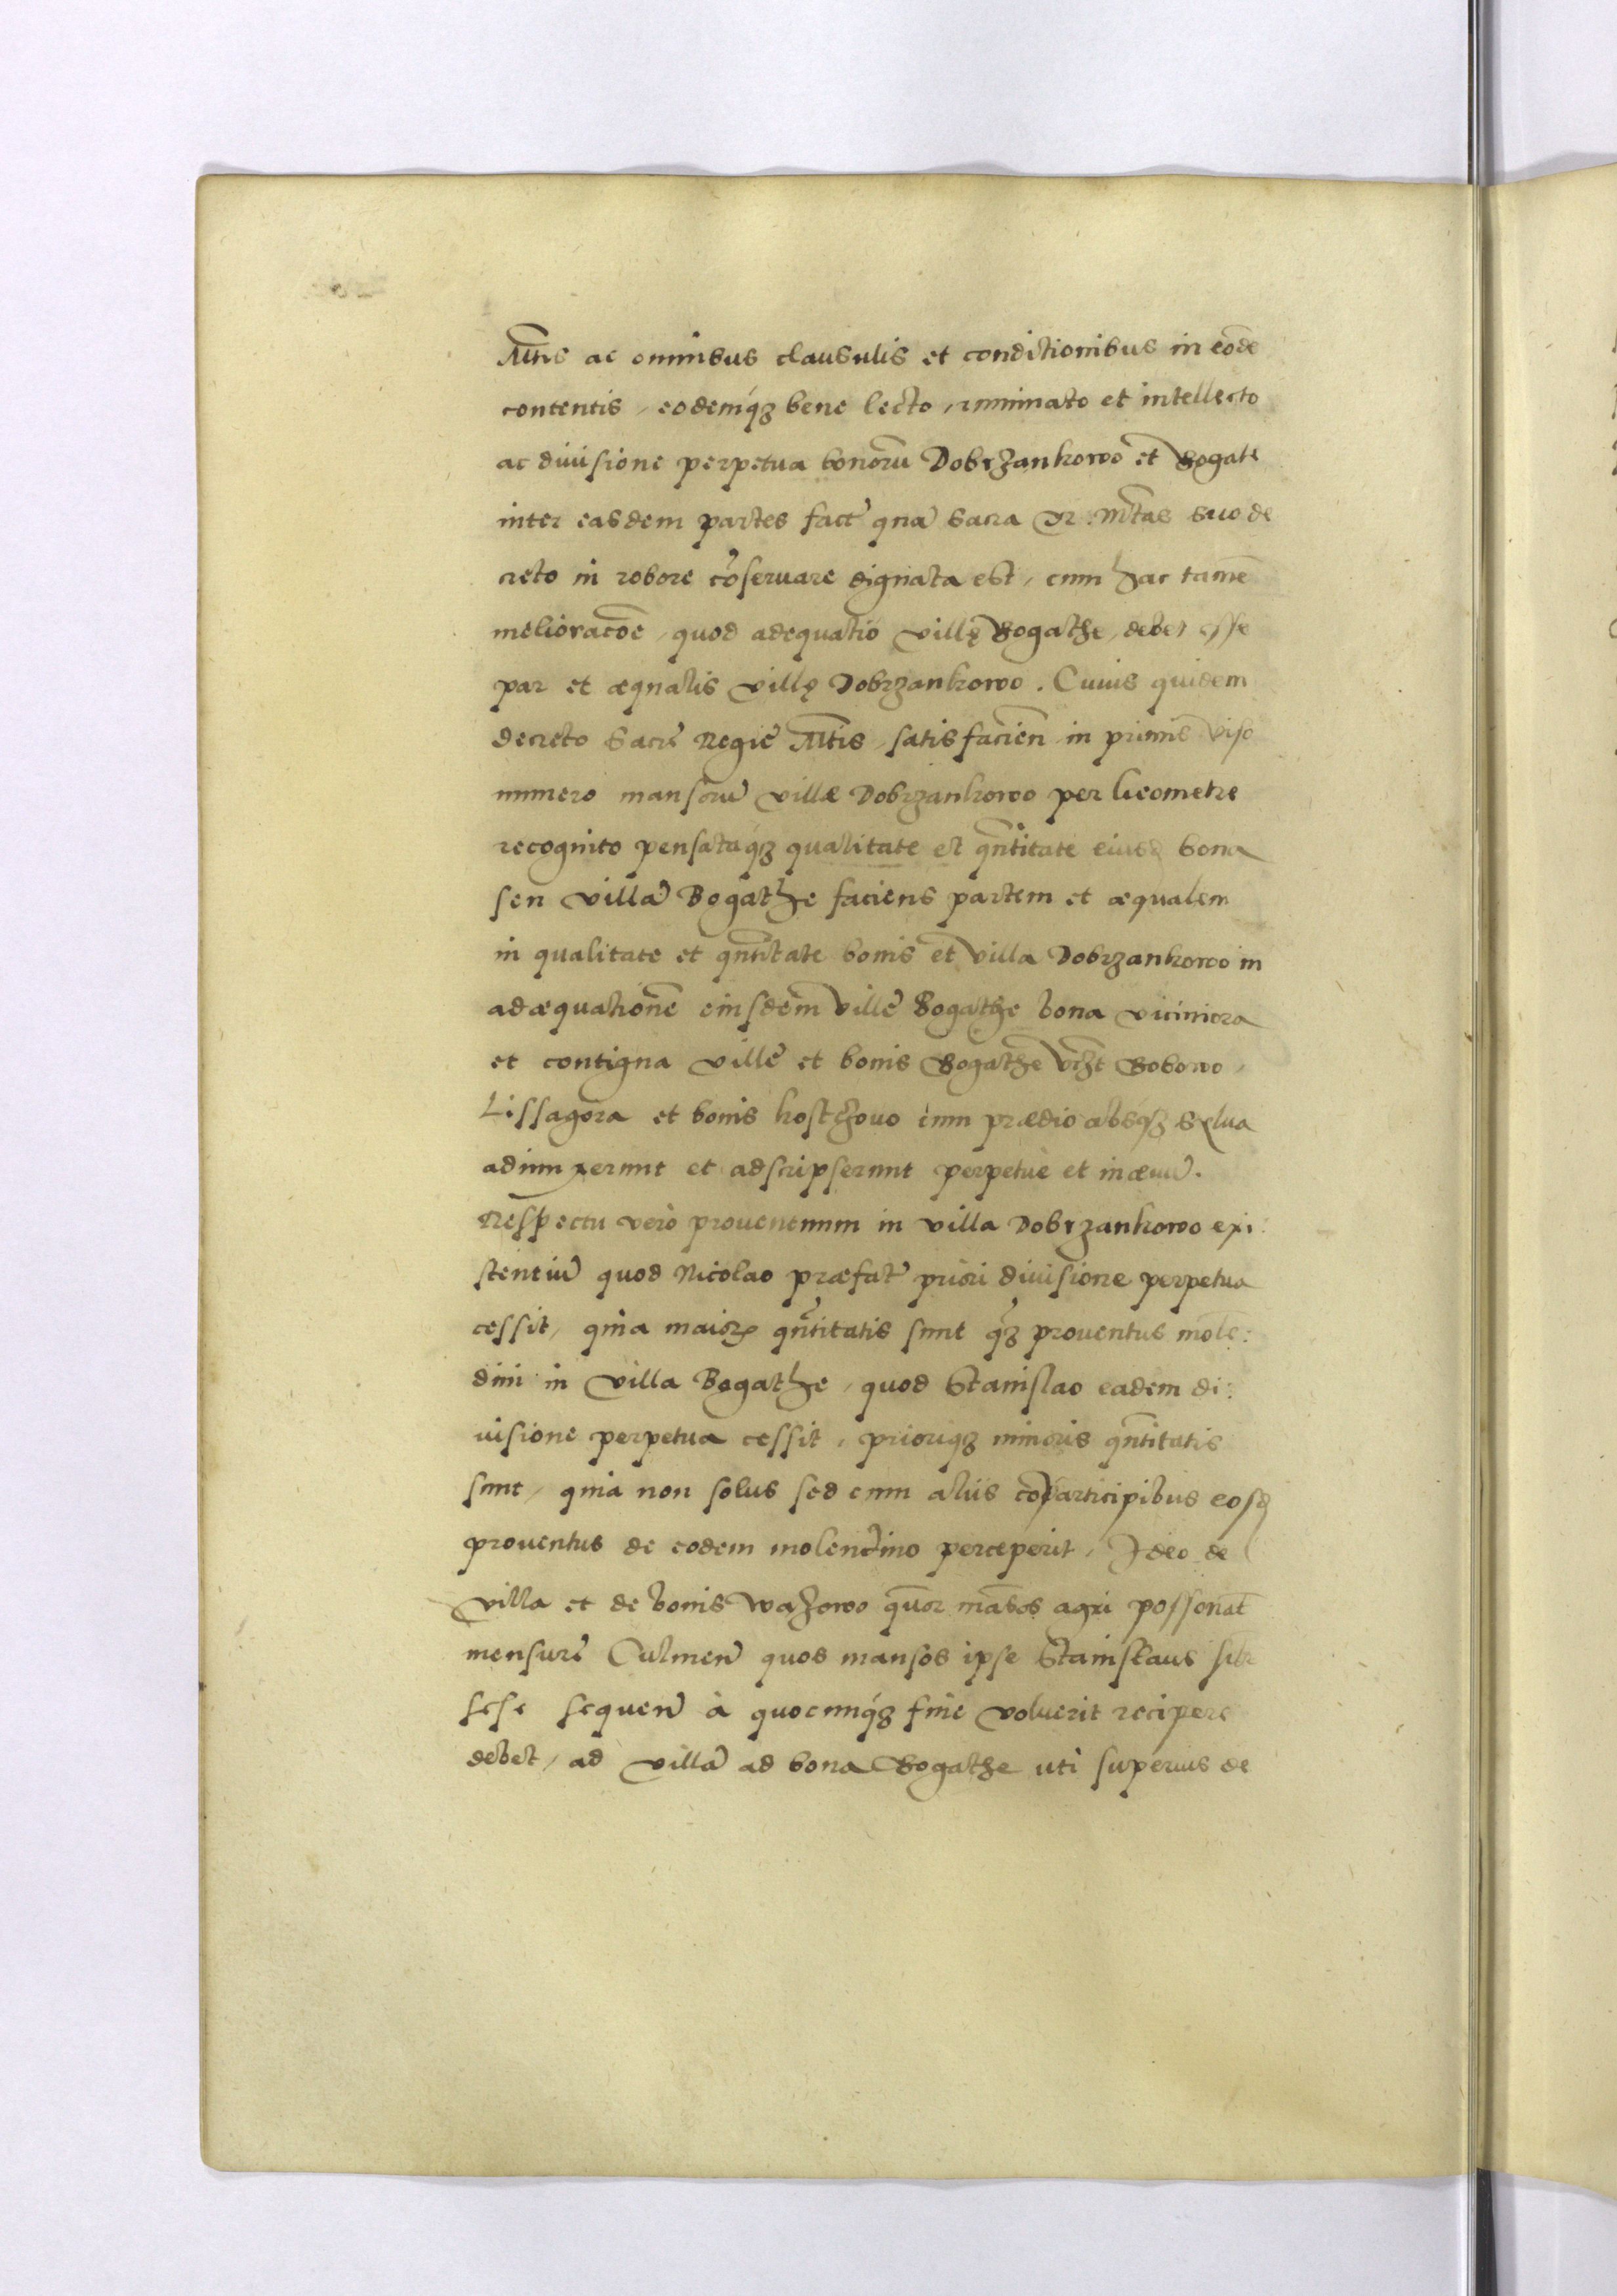 Mtis ac omnibus clausulis et conditionibus in eodē
contentis, eodemq́ʒ bene lecto, ruminato et intellecto
ac diuisione perpetua bonorū Dobrzankowo et Bogate
inter easdem partes fact̃ qnā Sacra R. Mtas suo de
creto in robore cōseruare dignata est, cum hac tamē
melioracōe, quod adequatio villę Bogathe, debet esse
par et æqualis villę Dobrzankowo. Cuius quidem
decreto Sacrę Regię Mtis, satisfacien̄ in primis viso
numero mansorū villæ Dobrzankowo per Geometrę
recognito pensataq́ʒ qualitate et qn̄titate eiusd bona
seu villā Bogathe faciens partem et æqualem
in qualitate et qn̄titate bonis et villa Dobrzankowo in
adæquationē eiusdem villę Bogathe bona viciniora
et contigua villę et bonis Bogathe vczt Bobowo,
Lissagora et bonis kostzovo cum prædio absq́ʒ sylua
adiunxerunt et adscripserunt perpetuè et in æuū.
Respectu verò prouentuum in villa Dobrzankowo exi:
stentiū quod Nicolao præfat̃ priori diuisione perpetua
cessit, quia maioris qn̄titatis sunt qʒ prouentus mole:
dini in villa Bogathe, quod Stanislao eadem di:
uisione perpetua cessit, prioriq́ʒ minoris qn̄titatis
sunt, quia non solus sed cum aliis cōparticipibus eosd
prouentus de eodem molendino perceperit, Ideo de
villa et de bonis Wazowo quor mansos agri possonat
mensurę Culmen̄ quos mansos ipse Stanislaus sibi
sese sequen̄ à quocumq́ʒ fine voluerit recipere
debet, ad villā ad bona Bogathe uti superius de